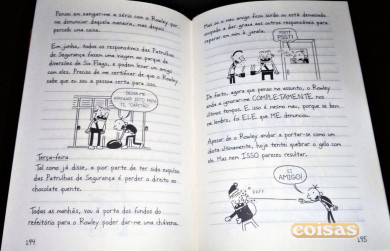 Pensei em zangar-me a sério com o Rowley por
me denunciar daquela maneira, mas depois
percebi uma coisa.
Em junho, todos os responsáveis das Patrulhas
de Segurança fazem uma viagem ao parque de
diversões de Six Flags, e podem levar um amigo
com eles. Preciso de me certificar de que o Rowley
sabe que eu sou a pessoa certa para isso.
Terça-feira
Tal como já disse, a pior parte de ter sido expulso
das Patrulhas de Segurança é perder o direito ao
chocolate quente.
Todas as manhãs, vou à porta dos fundos do
refeitório para o Rowley poder dar-me uma chávena.
194
Mas ou o meu amigo ficou surdo ou está demasiado
ocupado a dar graxa aos outros responsáveis para
reparar em mim à janela.
PSST!
PSST!
De facto, agora que penso no assunto, o Rowley
anda a ignorar-me COMPLETAMENTE nos
últimos tempos. E isso é mesmo mau, porque se bem
me lembro, foi ELE que ME denunciou.
Apesar de o Rowley andar a portar-se como um
idiota ultimamente, hoje tentei quebrar o gelo com
ele. Mas nem ISSO pareceu resultar.
EI
AMIGO!
195
coisas